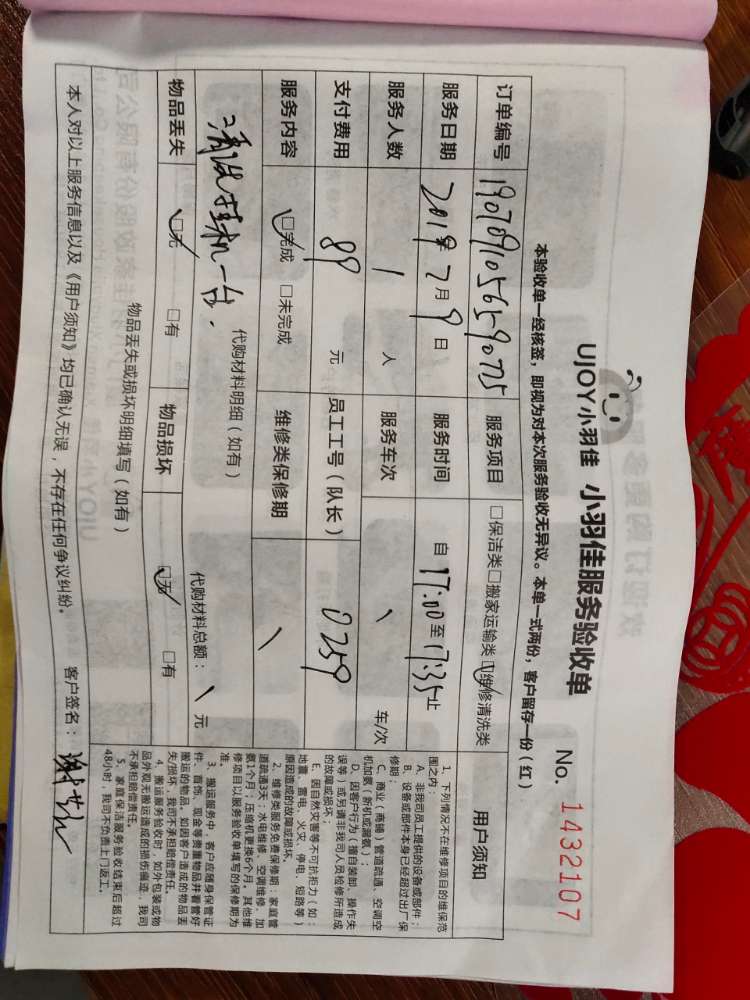 UJOY小羽佳 小羽佳服务验收单
No. 1432107
本验收单一经核签，即视为对本次服务验收无异议。本单一式两份，客户留存一份（红）
订单编号 服务项目 □保洁类□搬家运输类☑维修清洗类
服务日期 2019年7月9日 服务时间 自17:00至17:35止
服务人数 1 人 服务车次 \ 车/次
支付费用 89 元 员工工号（队长） 0259
服务内容 ☑完成 □未完成 维修类保修期 \
清洗挂机一台.
代购材料明细（如有）
代购材料总额： \ 元
物品丢失 ☑无 □有 物品损坏 ☑无 □有
物品丢失或损坏明细填写（如有）
本人对以上服务信息以及《用户须知》均已确认无误，不存在任何争议纠纷。 客户签名：
用户须知
1、下列情况不在维修项目的维保范
围之内：
A、非我司员工提供的设备或部件；
B、设备或部件本身已经超过出厂保
修期；
C、商业（商铺）管道疏通、空调空
机加氨（新机或漏氨）；
D、因客户行为（擅自装卸、操作失
误等）或另请非我司人员检修所造成
的故障或损坏；
E、因自然灾害等不可抗拒力（如：
地震、雷电、火灾、停电、短路等）
原因造成的故障或损坏。
2、维修类服务免费保修期：家庭管
道疏通3天；水电维修、空调维修、加
氨1个月；压缩机更换6个月。其他维
修项目以服务验收单填写的保修期为
准。
3、搬运服务中，客户应随身保管证
件、首饰、现金等贵重物品并看管好
搬运的物品，如因客户造成的物品丢
失/损坏，我司不承担赔偿责任。
4、搬运服务验收时，如外包装或物
品外观无搬运造成的损伤痕迹，我司
不承担赔偿责任。
5、家庭保洁服务验收结束后超过
48小时，我司不负责上门返工。